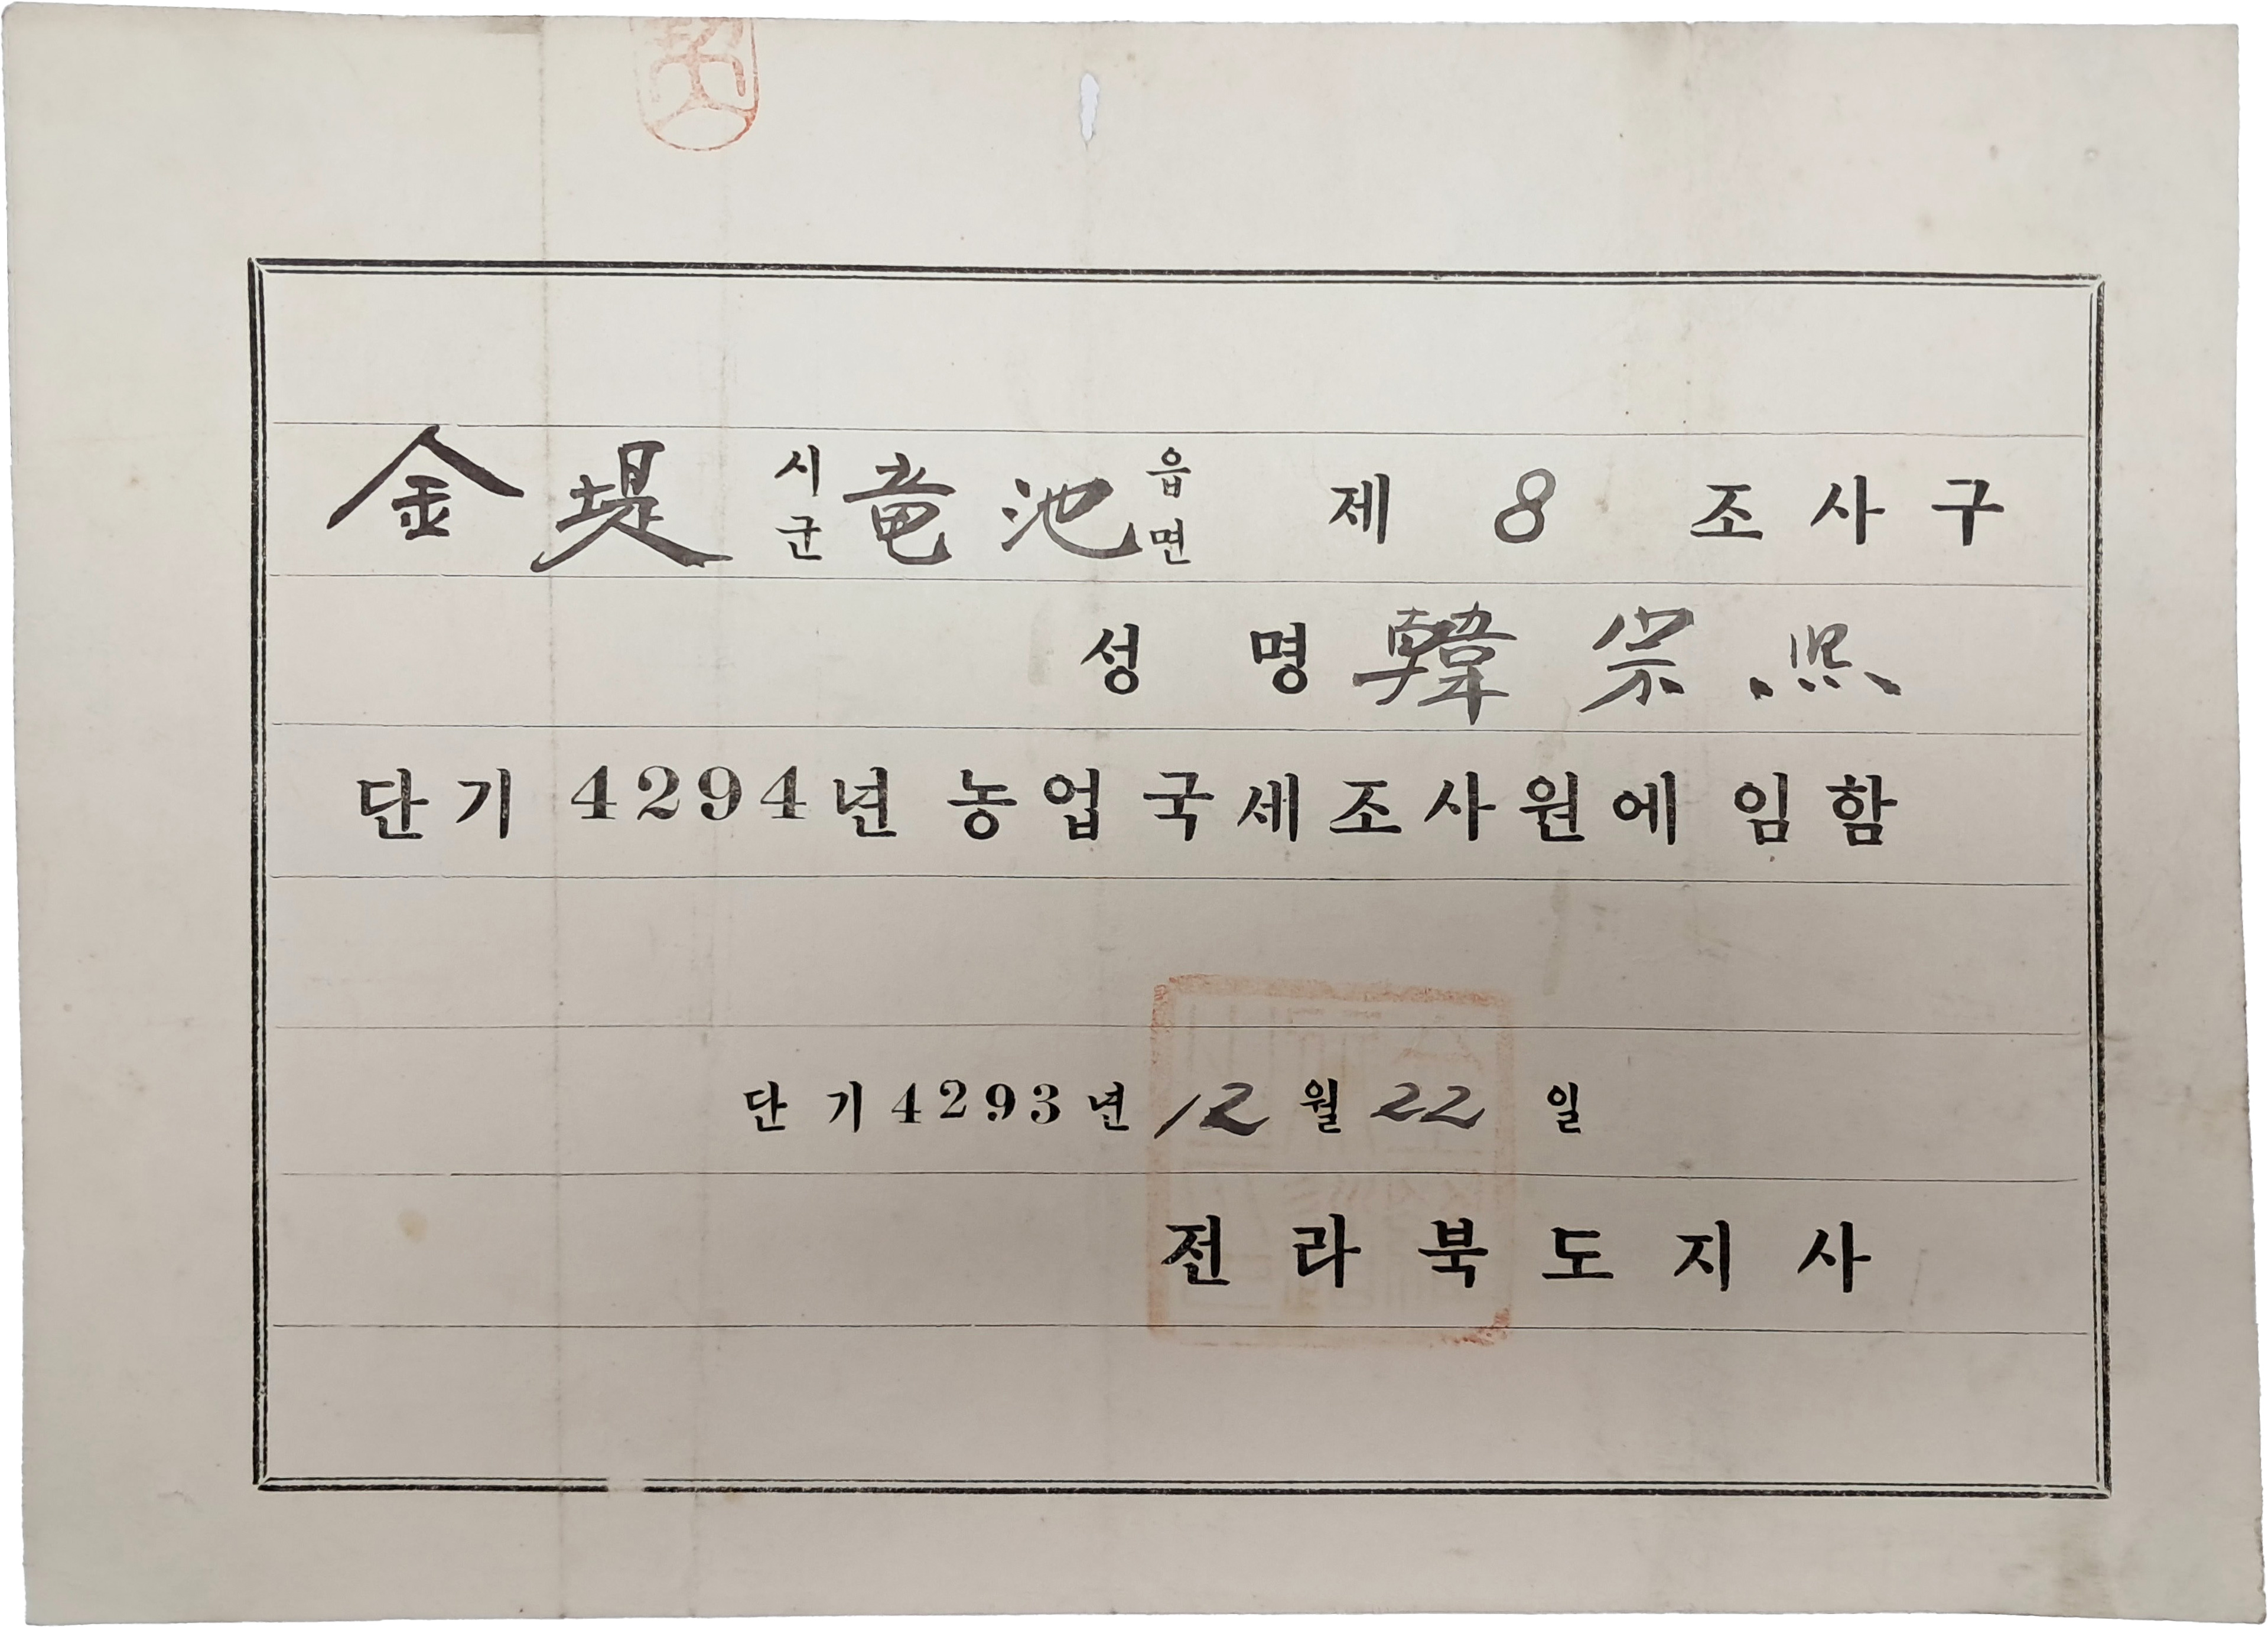 金堤 시군 竜池 읍면 제 8 조사구
성 명 韓宗
단기 4294년 농업국세조사원에 임함
단기 4293년 12월 22일
전라북도지사